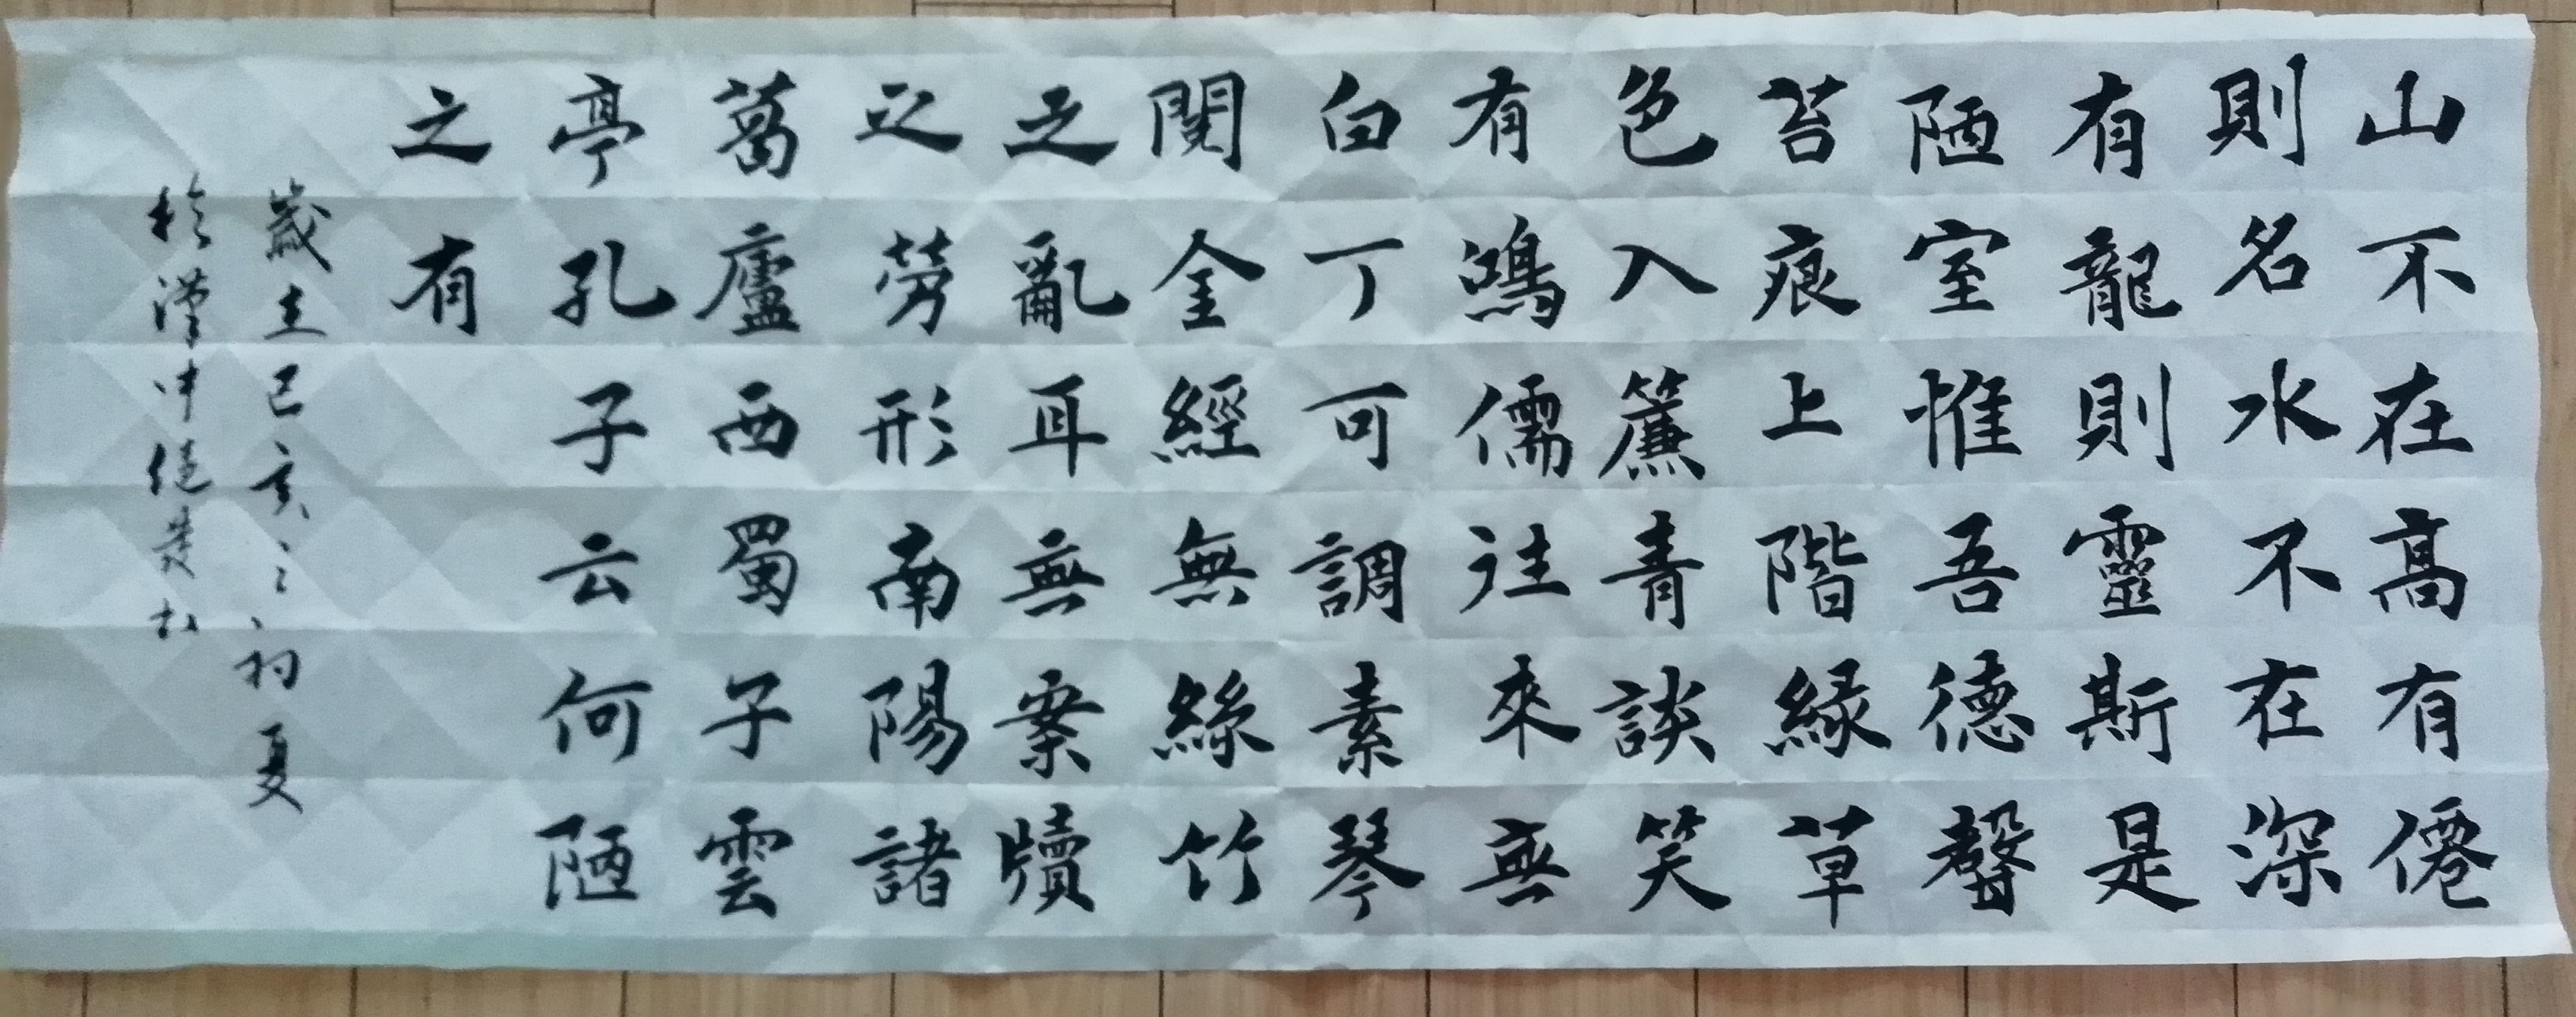 山不在高有僊
則名水不在深
有龍則靈斯是
陋室惟吾德馨
苔痕上階緑草
色入簾青談笑
有鴻儒往來無
白丁可調素琴
閱金經無絲竹
之亂耳無案牘
之勞形南陽諸
葛廬西蜀子雲
亭孔子云何陋
之有
歲在己亥之初夏
於漢中